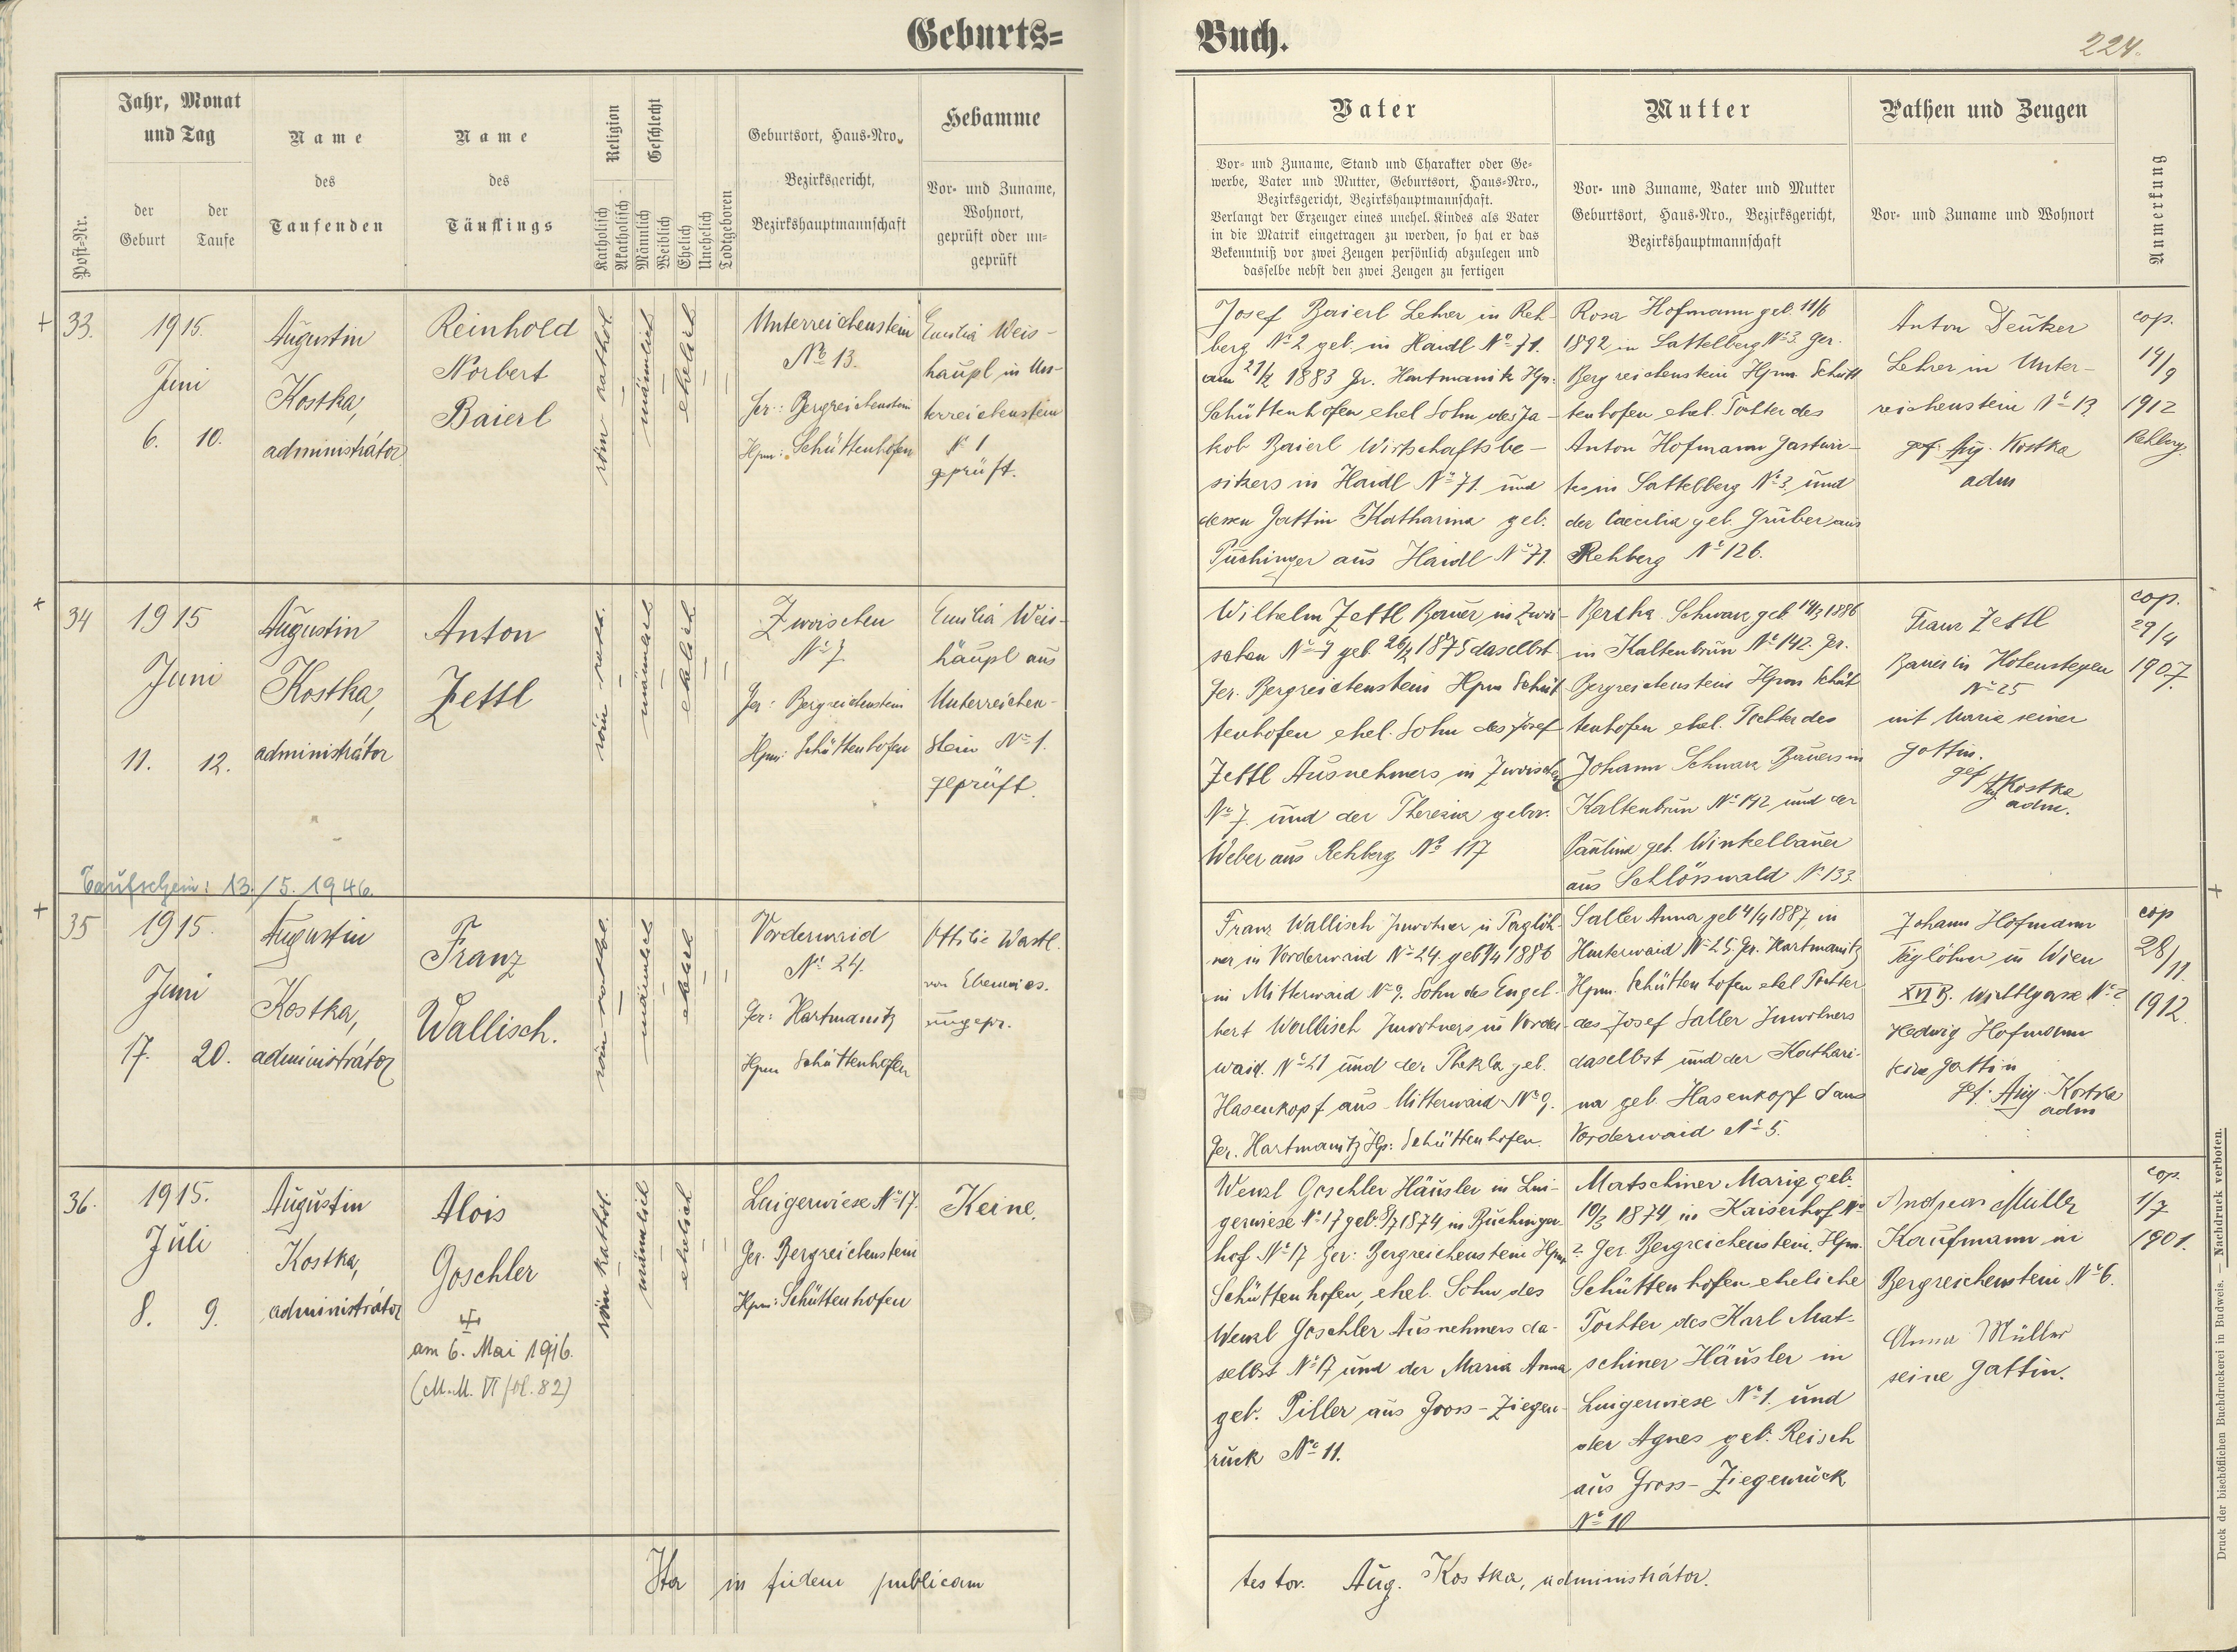 Geburts=
Buch.
224.
Jahr, Monat
und Tag
der
Geburt
der
Taufe
Post-Nr.
Name
des
Taufenden
Name
des
Täuflings
Religion
Katholisch
Akatholisch
Geschlecht
Männlich
Weiblich
Ehelich
Unehelich
Todtgeboren
Geburtsort, Haus-Nro.,
Bezirksgericht,
Bezirkshauptmannschaft
Hebamme
Vor- und Zuname,
Wohnort,
geprüft oder un=
geprüft
Vater
Vor- und Zuname, Stand und Charakter oder Ge=
werbe, Vater und Mutter, Geburtsort, Haus-Nro.,
Bezirksgericht, Bezirkshauptmannschaft.
Verlangt der Erzeuger eines unehel. Kindes als Vater
in die Matrik eingetragen zu werden, so hat er das
Bekenntniß vor zwei Zeugen persönlich abzulegen und
dasselbe nebst den zwei Zeugen zu fertigen
Mutter
Vor- und Zuname, Vater und Mutter
Geburtsort, Haus-Nro., Bezirksgericht,
Bezirkshauptmannschaft
Pathen und Zeugen
Vor- und Zuname und Wohnort
Anmerkung
33.
1915.
Juni
6. 10.
Augustin
Kostka,
administrátor
Reinhold
Norbert
Baierl
röm kathol.
männlich
ehelich
Unterreichenstein
No 13.
Ger.: Bergreichenstein
Hpm: Schüttenhofen
Emilia Weis-
häupl in Un-
terreichenstein
No 1
geprüft.
Josef Baierl Lehrer in Reh-
berg No 2 geb. in Haidl No 71.
am 27/2 1883 Gr. Hartmanitz Hpm:
Schüttenhofen ehel Sohn des Ja-
kob Baierl Wirtschaftsbe-
sitzers in Haidl No 71. und
dessen Gattin Katharina geb.
Puchinger aus Haidl No 71.
Rosa Hofmann geb. 11/6
1892 in Sattelberg No 3. Ger.
Bergreichenstein Hpm Schütt
tenhofen ehel. Tochter des
Anton Hofmann Gastwir-
tes in Sattelberg No 3. und
der Caecilia geb. Gruber aus
Rehberg No 126.
Anton Deutzer
Lehrer in Unter-
reichenstein No 13
gef. Aug. Kostka
adm
cop.
14/9
1912
Rehberg
34
1915
Juni
11. 12.
Augustin
Kostka,
administrátor
Anton
Zettl
männlich
ehelich
Zwoischen
No 7
Ger: Bergreichenstein
Hpm: Schüttenhofen
Emilia Weis-
häupl aus
Unterreichen-
stein No 1.
geprüft.
Wilhelm Zettl Bauer in Zwoi-
schen No 7 geb. 26/2 1875 daselbst
Ger. Bergreichenstein Hpm Schüt
tenhofen ehel. Sohn des Josef
Zettl Ausnehmers in Zwoischen
No 7. und der Theresia gebor.
Weber aus Rehberg No 117
Bertha Schwarz geb 14/3 1886
in Kaltenbrun No 142. Gr.
Bergreichenstein Hpm Schüt
tenhofen ehel. Tochter des
Johann Schwarz Bauers in
Kaltenbrun No 142 und der
Paulina geb. Winkelbauer
aus Schlösswald No 133.
Franz Zettl
Bauer in Hohenstegen
No 25
mit Maria seiner
Gattin.
gef Aug Kostka
adm.
cop.
29/4
1907.
Taufschein: 13./5. 1946.
35
1915.
Juni
17. 20.
Augustin
Kostka,
administrátor
Franz
Wallisch.
männlich
ehelich
Vorderwaid
No 24.
Ger: Hartmanitz
Hpm Schüttenhofen
Ottilie Wastl.
ungepr.
Franz Wallisch Inwohner u Taglöh-
ner in Vorderwaid No 24. geb 1/4 1886
in Mitterwaid No 9. Sohn des Engel-
bert Wallisch Inwohners in Vorder-
waid. No 21 und der Thekla geb.
Hasenkopf aus Mitterwaid No 9.
Ger. Hartmanitz Hp: Schüttenhofen.
Saller Anna geb 4/4 1887, in
Hinterwaid No 25. Gr. Hartmanitz
Hpm. Schüttenhofen ehel Tochter
des Josef Saller Inwohners
daselbst und der Kathari-
na geb. Hasenkopf aus
Vorderwaid No 5.
Johann Hofmann
Taglöhner in Wien
XVI B.
Hedwig Hofmann
seine Gattin
gef. Aug. Kostka
adm
cop
28/11
1912.
36.
1915.
Juli
8. 9.
Augustin
Kostka,
administrátor
Alois
Goschler
am 6. Mai 1916.
(M.M. VI fol. 82)
röm kathol.
männlich
ehelich
Luigerwiese No 17.
Ger. Bergreichenstein
Hpm: Schüttenhofen
Keine.
Wenzl Goschler Häusler in Lui-
gerwiese No 17 geb. 8/7 1874 in Buchinger-
hof No 17 Ger: Bergreichenstein Hpm
Schüttenhofen, ehel. Sohn des
Wenzl Goschler Ausnehmers da-
selbst No 17 und der Maria Anna
geb. Piller aus Gross-Ziegen-
rück No 11.
Matschiner Maria geb.
10/3 1874 in Kaiserhof No
2. Ger. Bergreichenstein. Hpm.
Schüttenhofen eheliche
Tochter des Karl Mat-
schiner Häusler in
Luigerwiese No 1. und
der Agnes geb. Reisch
aus Gross-Ziegenrück
No 10
Andreas Müller
Kaufmann in
Bergreichenstein No 6.
Anna Müller
seine Gattin.
cop.
1/7
1901.
Ita in fidem publicam
testor. Aug. Kostka, administrátor.
Druck der bischöflichen Buchdruckerei in Budweis. — Nachdruck verboten.